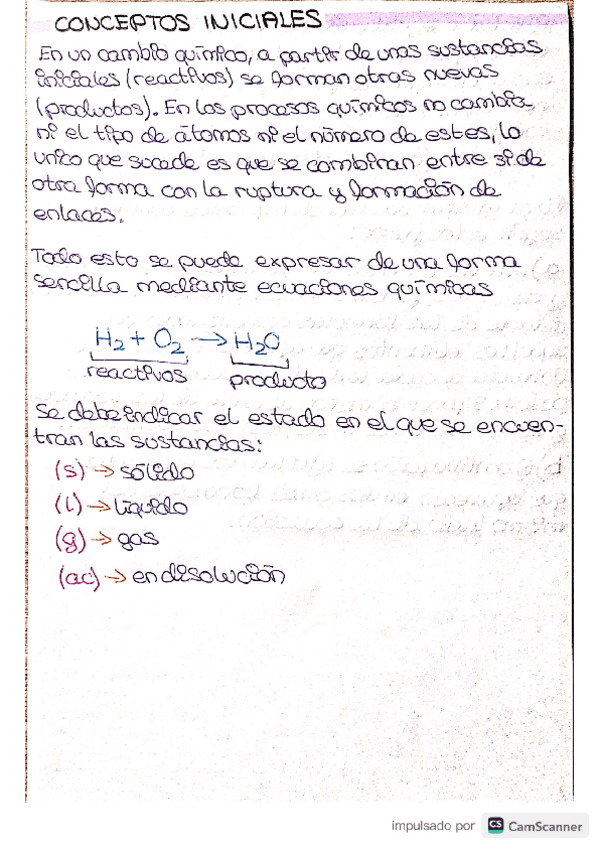 CONCEPTOS INICIALES
En un cambio químico, a partir de unas sustancias
iniciales (reactivos) se forman otras nuevas
(productos). En los procesos químicos no cambia
ni el tipo de átomos ni el número de estes, lo
unico que sucede es que se combinan entre si de
otra forma con la ruptura y formación de
enlaces.
Todo esto se puede expresar de una forma
sencilla mediante ecuaciones químicas
H₂ + O₂ → H₂O
reactivos producto
Se debe indicar el estado en el que se encuen-
tran las sustancias:
(s) → sólido
(l) → líquido
(g) → gas
(ac) → en disolución
impulsado por CS CamScanner